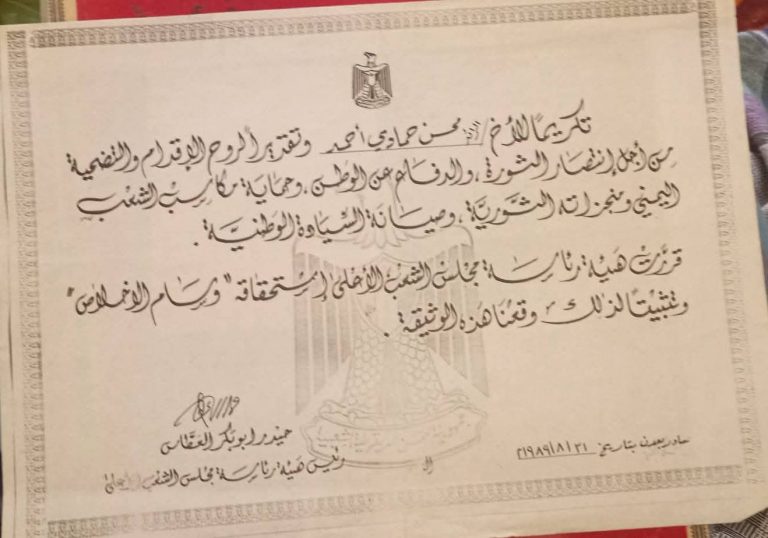 تكريمًا للأخ/ محسن حماوي أحمد وتقديرًا لروح الإقدام والتضحية
من أجل إنتصار الثورة، والدفاع عن الوطن، وحماية مكاسب الشعب
اليمني ومنجزاته الثورية، وصيانة السيادة الوطنية.
قررت هيئة رئاسة مجلس الشعب الأعلى إستحقاقه "وسام الاخلاص"
وتثبيتًا لذلك وقعنا هذه الوثيقة.
حيدر ابوبكر العطاس
رئيس هيئة رئاسة مجلس الشعب الأعلى
صادر بعدن بتاريخ ٢١٩٨٩/٨/٣١